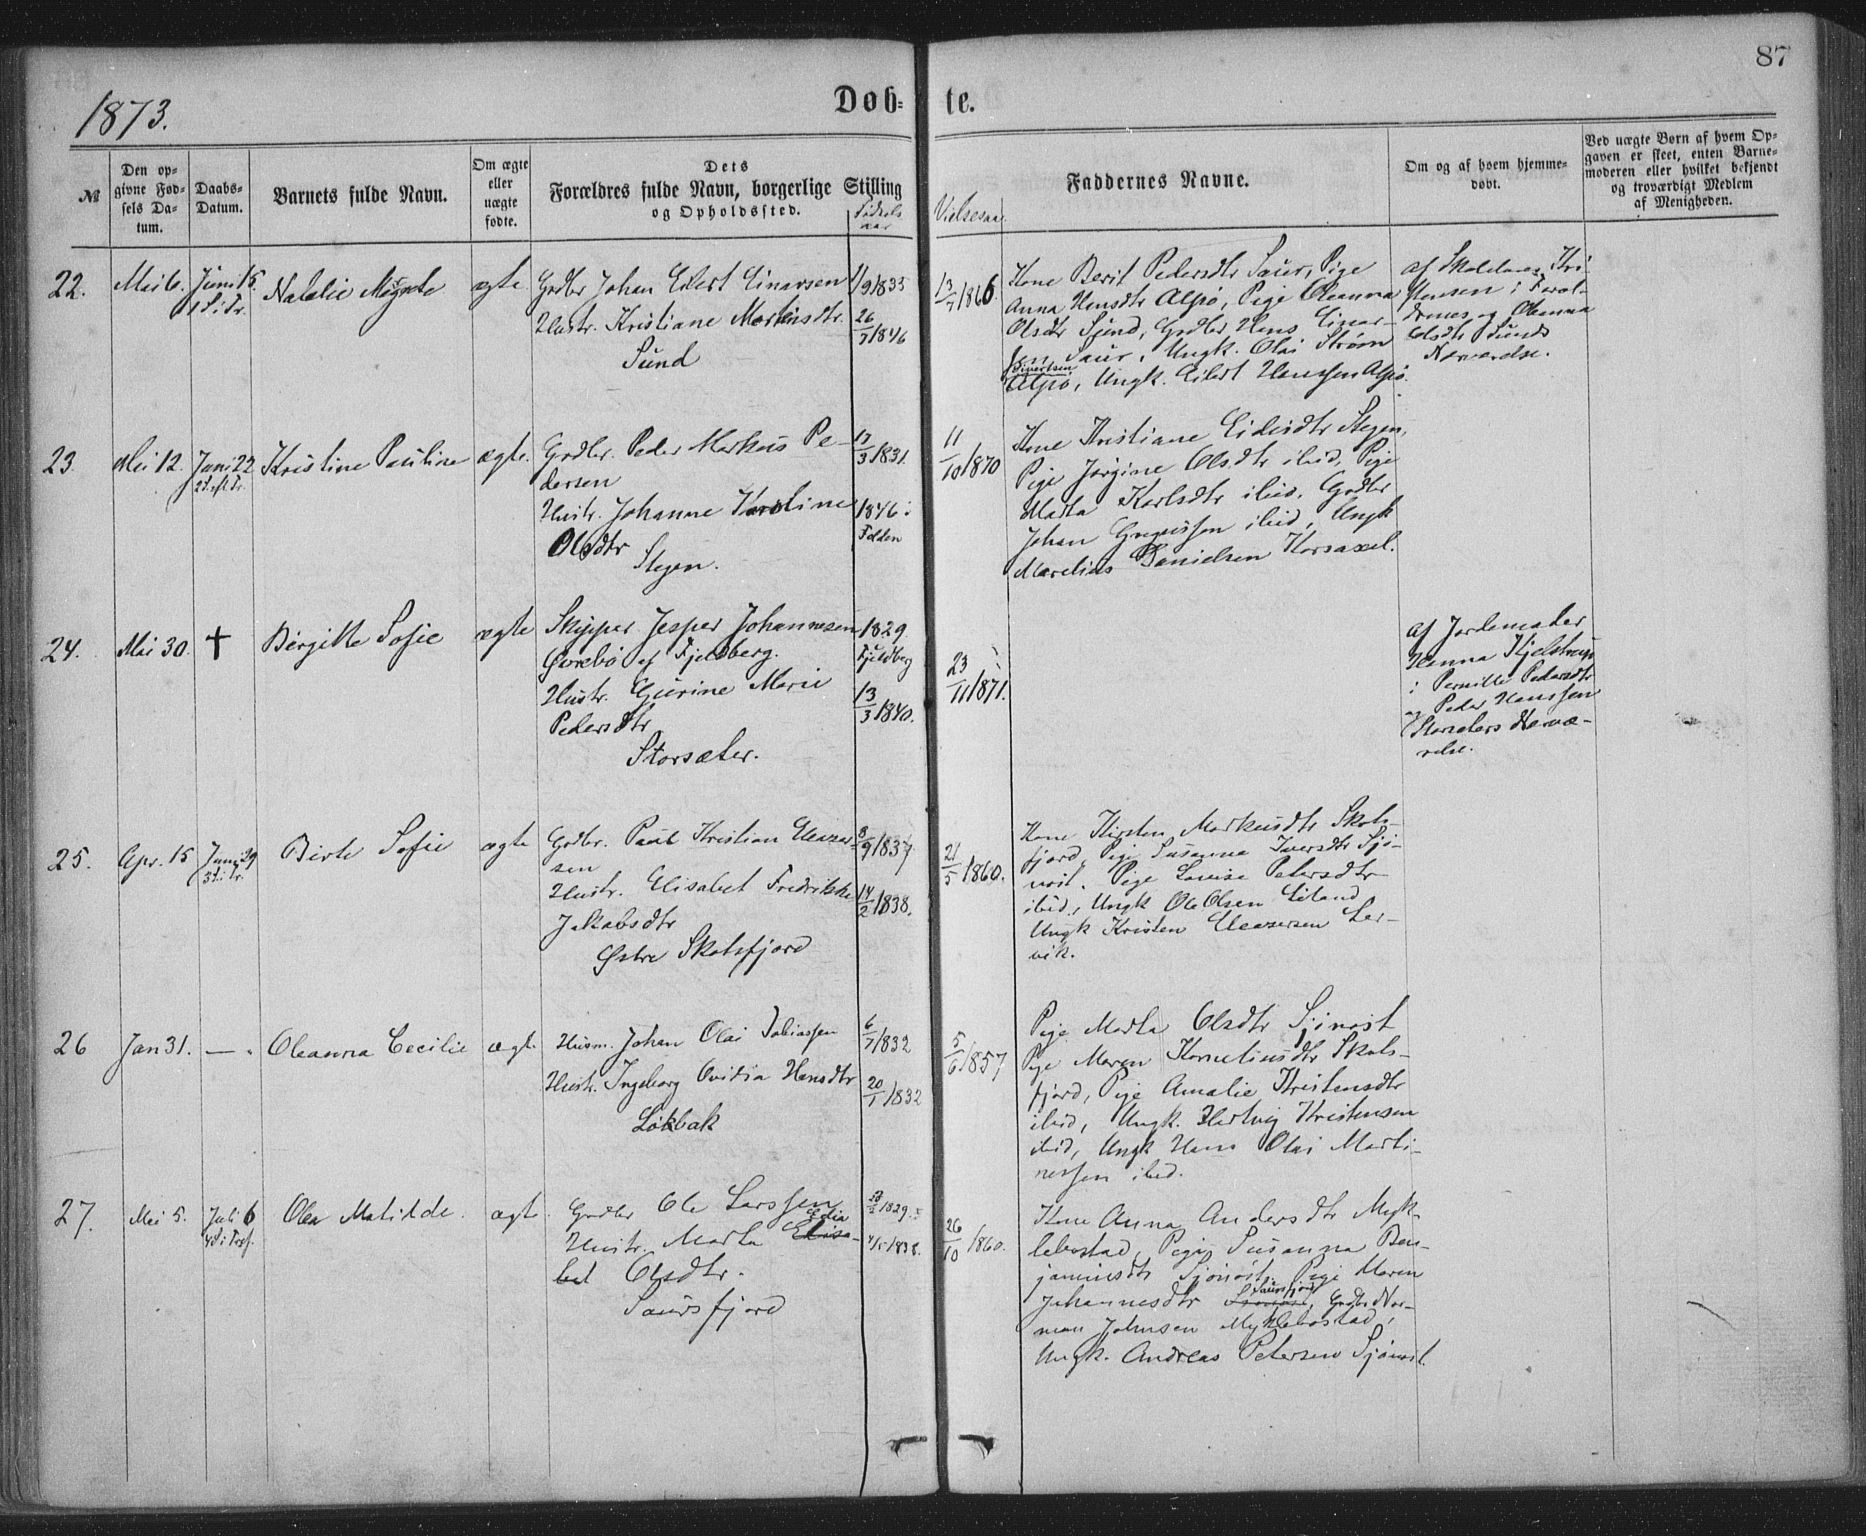 87
1873.
Døb-
te.
№
Den op-
givne Fød-
sels Da-
tum.
Daabs-
Datum.
Barnets fulde Navn.
Om ægte
eller
uægte
fødte.
Dets
Forældres fulde Navn, borgerlige Stilling
og Opholdssted.
Fødsels
aar
Vielsesaar
Faddernes Navne.
Om og af hvem hjemme-
døbt.
Ved uægte Børn af hvem Op-
gaven er skeet, enten Barne-
moderen eller hvilket bekjendt
og troværdigt Medlem
af Menigheden.
22.
Mai 6.
Juni 15.
1 S. i Tr.
Natalie
ægte
Grdbr Johan Edert Einarsen
Hustr. Kristiane Martinsdtr.
Sund
11/9 1835
26/7 1846
13/7 1866
Kone Berit Pedersdtr Saur, Pige
Anna Hansdtr Alpø, Pige Oleanna
Olsdtr Sund, Grdbr Hans Einar-
sen Saur, Ungk. Olai Strøm
Sivertsen
Alpø, Ungk. Eilert Hanssen Alpø.
af Skolelærer Kri-
stensen i Foræl-
drenes og Oleanna
Olsdtr Sunds
Nærværelse.
23.
Mai 12.
Juni 22
2 S. eft. Tr.
Kristine Pauline
ægte.
Grdbr. Peder Markus Pe-
dersen
Hustr. Johanne Karoline
Olsdtr
Stegen.
17/3 1831.
1846 i
Folden
11/10 1870
Kone Kristiane Eidisdtr Stegen,
Pige Jørgine Olsdtr ibid, Pige
Marta Karlsdtr ibid, Grdbr
Johan Gregussen ibid, Ungk
Marelius Danielsen Korsaxel.
24.
Mai 30.
✝
Birgitte Sofie
ægte
Skipper Jesper Johannesen
Øvrebø af Fjeldberg.
Hustr. Gurine Marie
Pedersdtr
Storsæter.
1829
Fjeldberg
13/3 1840.
23/11 1871.
af Jordemoder
Hanna Kjelstrup
i Pernille Pedersdtr
og Peder Hanssen
Storsæters Nærvæ-
relse.
25.
Apr. 15
Juni 29
3 S. i Tr.
Birte Sofie
ægte
Grdbr. Paul Kristian Eleazer
sen
Hustr. Elisabet Fredrikke
Jakobsdtr
Østre Skotsfjord
8/9 1837
14/2 1838.
21/5 1860.
Kone Kirsten Markusdtr Skots-
fjord, Pige Susanna Iversdtr Sjø-
nøst. Pige Lovise Petersdtr
ibid, Ungk Ole Olsen Eiland
Ungk Kristen Eleasersen Ler-
vik.
26
Jan 31.
—
Oleanna Cecilie
ægte
Husm. Johan Olai Tobiassen
Hustr. Ingeborg Ovidia Hansdtr
Løkbak
6/7 1832
20/1 1832
5/6 1857
Pige Marta Olsdtr Sjønøst
Pige Maren Korneliusdtr Skots-
fjord, Pige Amalie Kristensdtr
ibid, Ungk. Hartvig Kristensen
ibid, Ungk Hans Olai Marti-
nessen ibid.
27.
Mai 5.
Juli 6
4 S. i Tref.
Olea Matilde.
ægte
Grdbr Ole Larssen
Edia
Hustr. Marta Elisa-
bet Olsdtr.
Saursfjord
1829.
1838.
26/10 1860.
Kone Anna Andersdtr Myk-
lebostad, Pige Susanna Ben-
jaminsdtr Sjønøst, Pige Maren
Saursfjord
Johannesdtr Sjønøst, Grdbr Nor-
man Johnsen Myklebostad,
Ungk. Andreas Petersen Sjønøst.